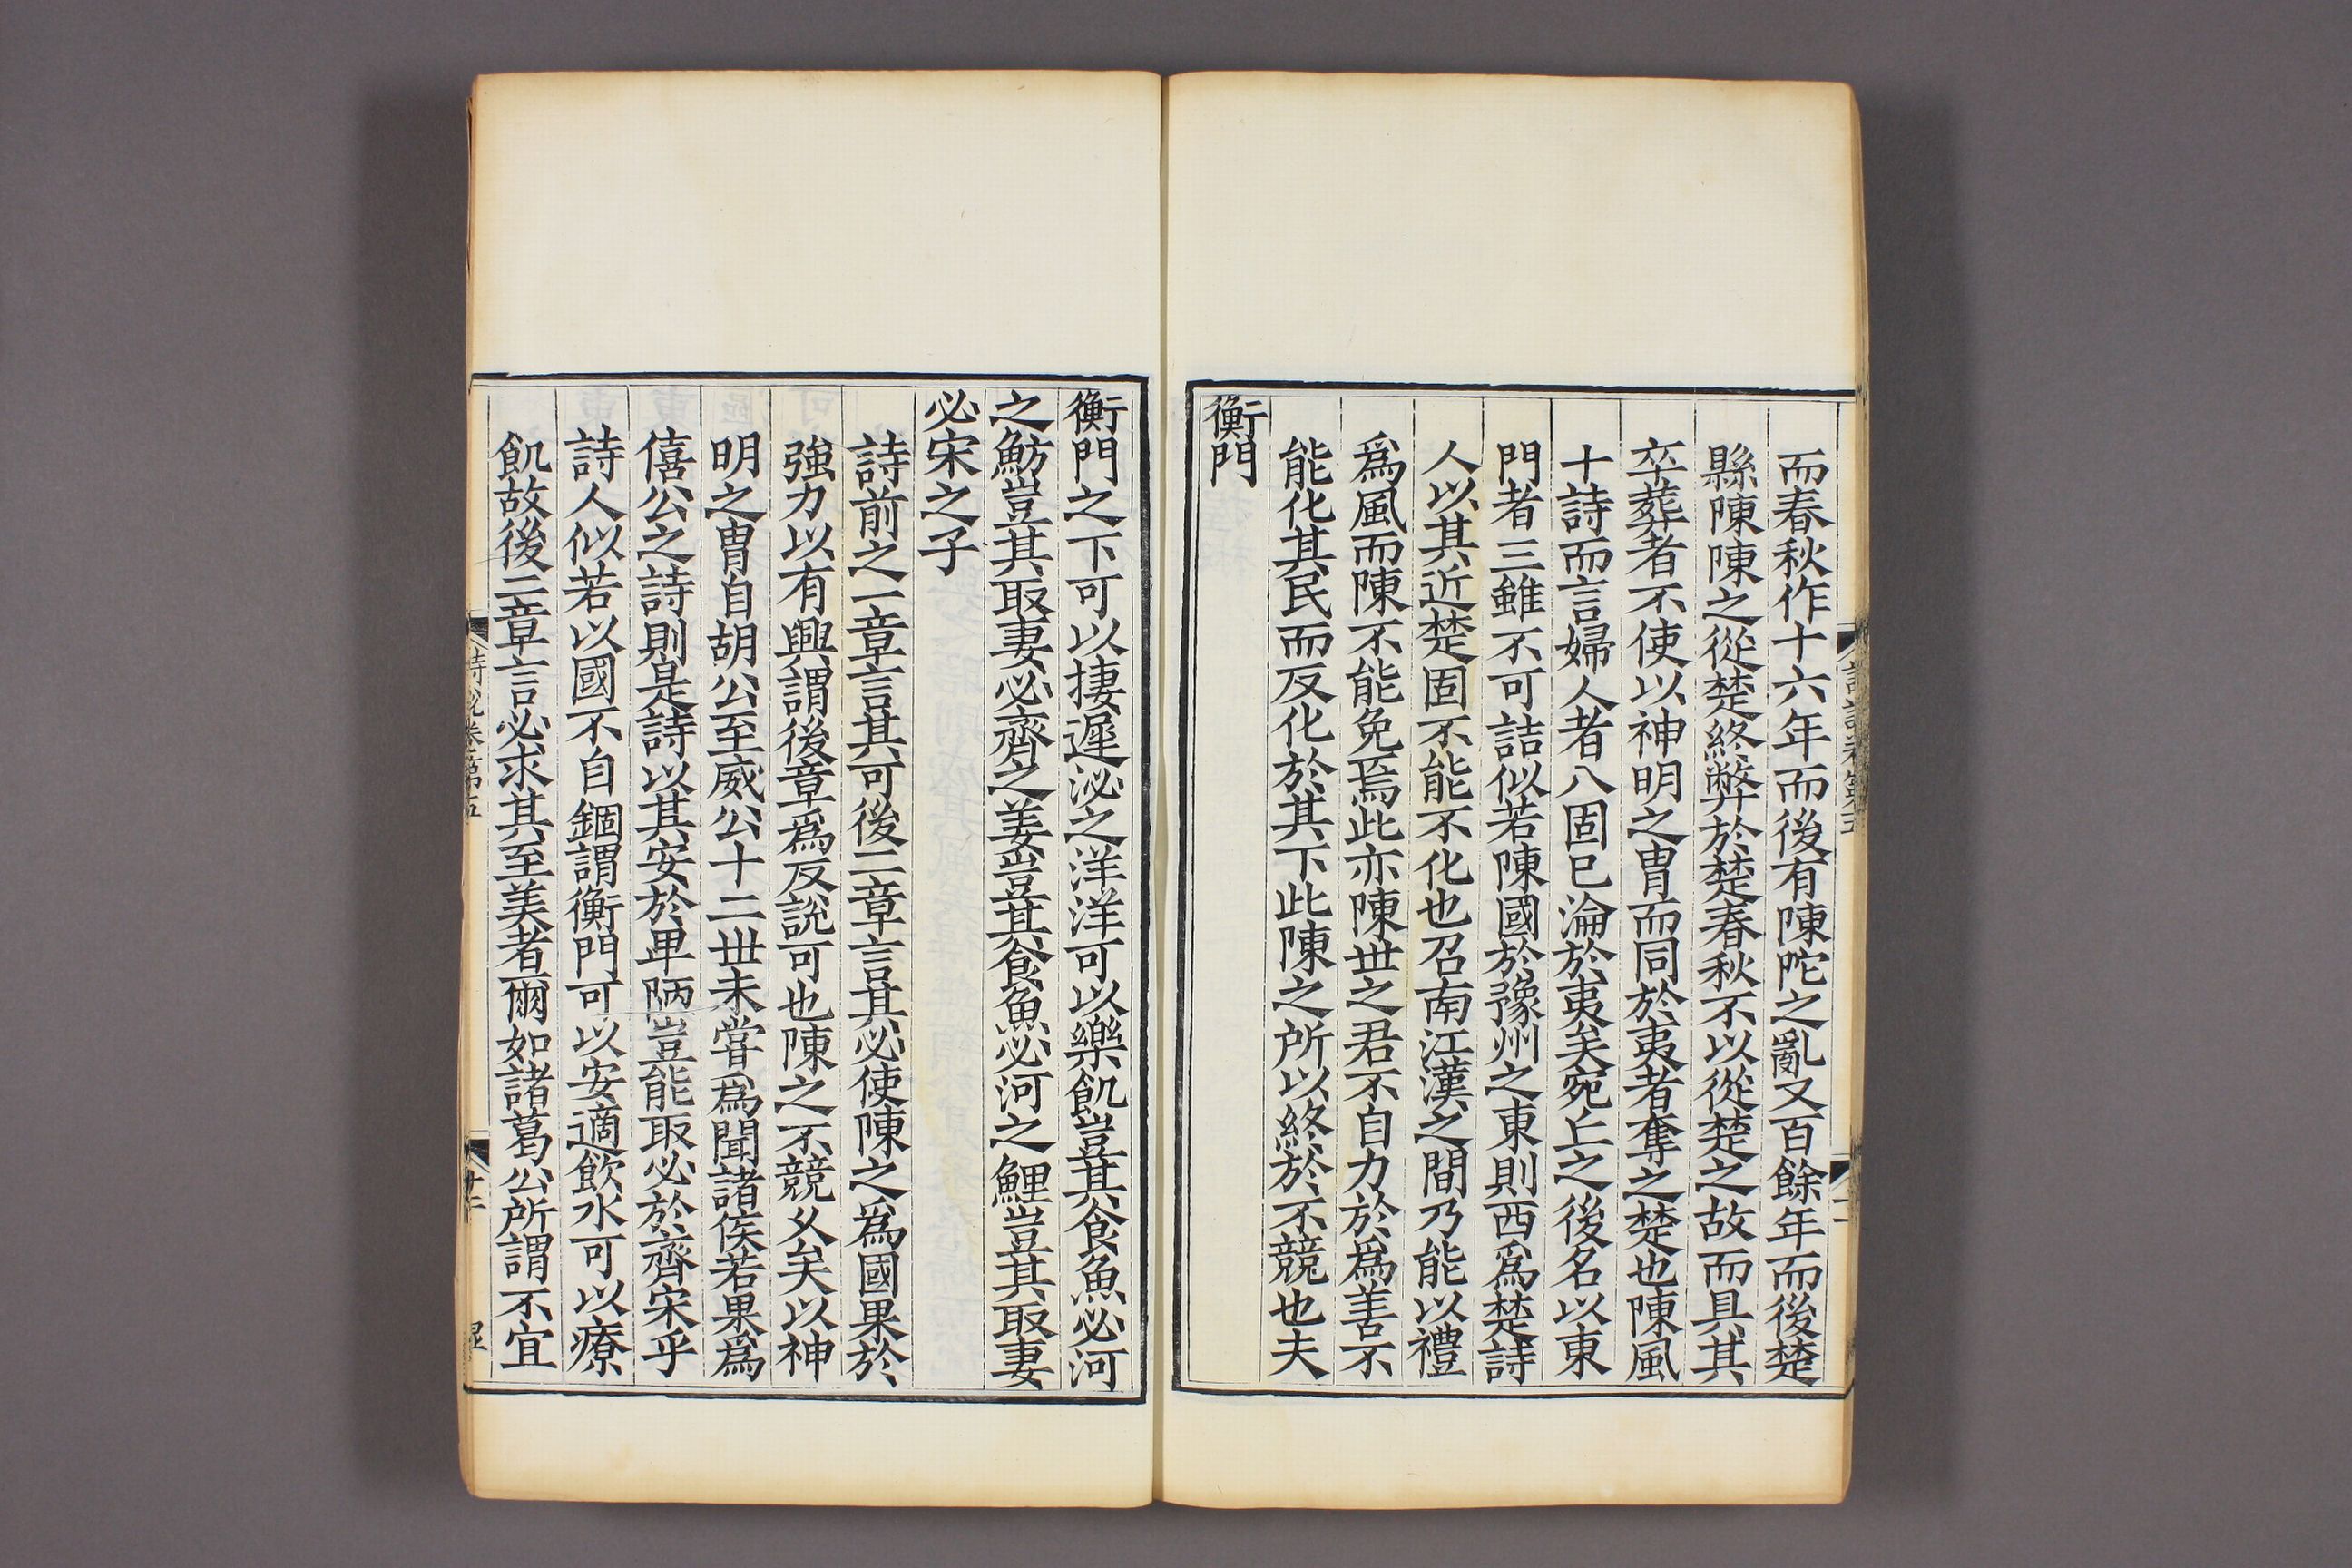 而春秋作十六年而後有陳陀之亂又百餘年而後楚
縣陳陳之從楚終弊於楚春秋不以從楚之故而具其
卒葬者不使以神明之胄而同於夷者奪之楚也陳風
十詩而言婦人者八固已淪於夷矣宛丘之後名以東
門者三雖不可詰似若陳國於豫州之東則西爲楚詩
人以其近楚固不能不化也召南江漢之間乃能以禮
爲風而陳不能免焉此亦陳世之君不自力於爲善不
能化其民而反化於其下此陳之所以終於不競也夫
衡門
衡門之下可以捿遲泌之洋洋可以樂飢豈其食魚必河
之魴豈其取妻必齊之姜豈其食魚必河之鯉豈其取妻
必宋之子
詩前之一章言其可後二章言其必使陳之爲國果於
強力以有興謂後章爲反說可也陳之不競乆矣以神
明之胄自胡公至威公十二世未嘗爲聞諸侯若果爲
僖公之詩則是詩以其安於卑陋豈能取必於齊宋乎
詩人似若以國不自錮謂衡門可以安適飲水可以療
飢故後二章言必求其至美者爾如諸葛公所謂不宜
詩說卷第五